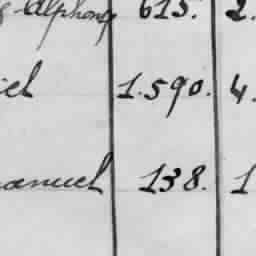 Alphons 615. 2.
iel 1.590. 4.
anuel 138. 1